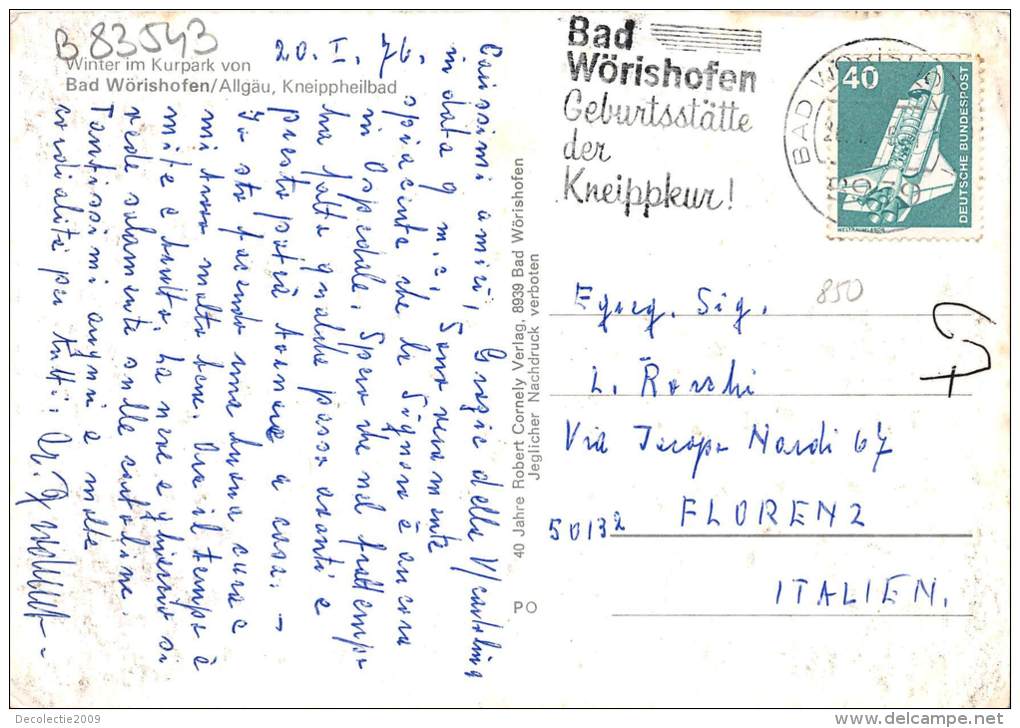 B 83543
Winter im Kurpark von
Bad Wörishofen/Allgäu, Kneippheilbad
20. I. 76.
Carissimi amici, Grazie della V/cartolina
in data 9 m.c., Sono veramente
spiacente che la Signora è ancora
in Ospedale. Spero che nel frattempo
ha fatto qualche passo avanti e
presto potrà tornare a casa. →
Io sto facendo una buona cura e
mi trovo molto bene. Ora il tempo è
mite e brutto. La neve e ghiaccio si
vede solamente sulle cartoline.
Tantissimi auguri e molte
cordialità per tutti.
40 Jahre Robert Cornely Verlag, 8939 Bad Wörishofen
Jeglicher Nachdruck verboten
PO
Bad
Wörishofen
Geburtsstätte
der
Kneippkur!
BAD WÖRISHO
8939
40
DEUTSCHE BUNDESPOST
WELTRAUMLABOR
850
Egreg. Sig.
L. Ronchi
Via Jacopo Nardi 67
50132 FLORENZ
ITALIEN.
Decolectie2009
www.delcampe.net